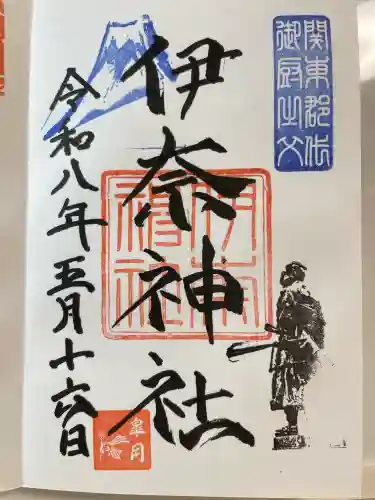 関東郡代
御厨之父
伊奈神社
伊奈神社
令和八年五月十六日
皐月